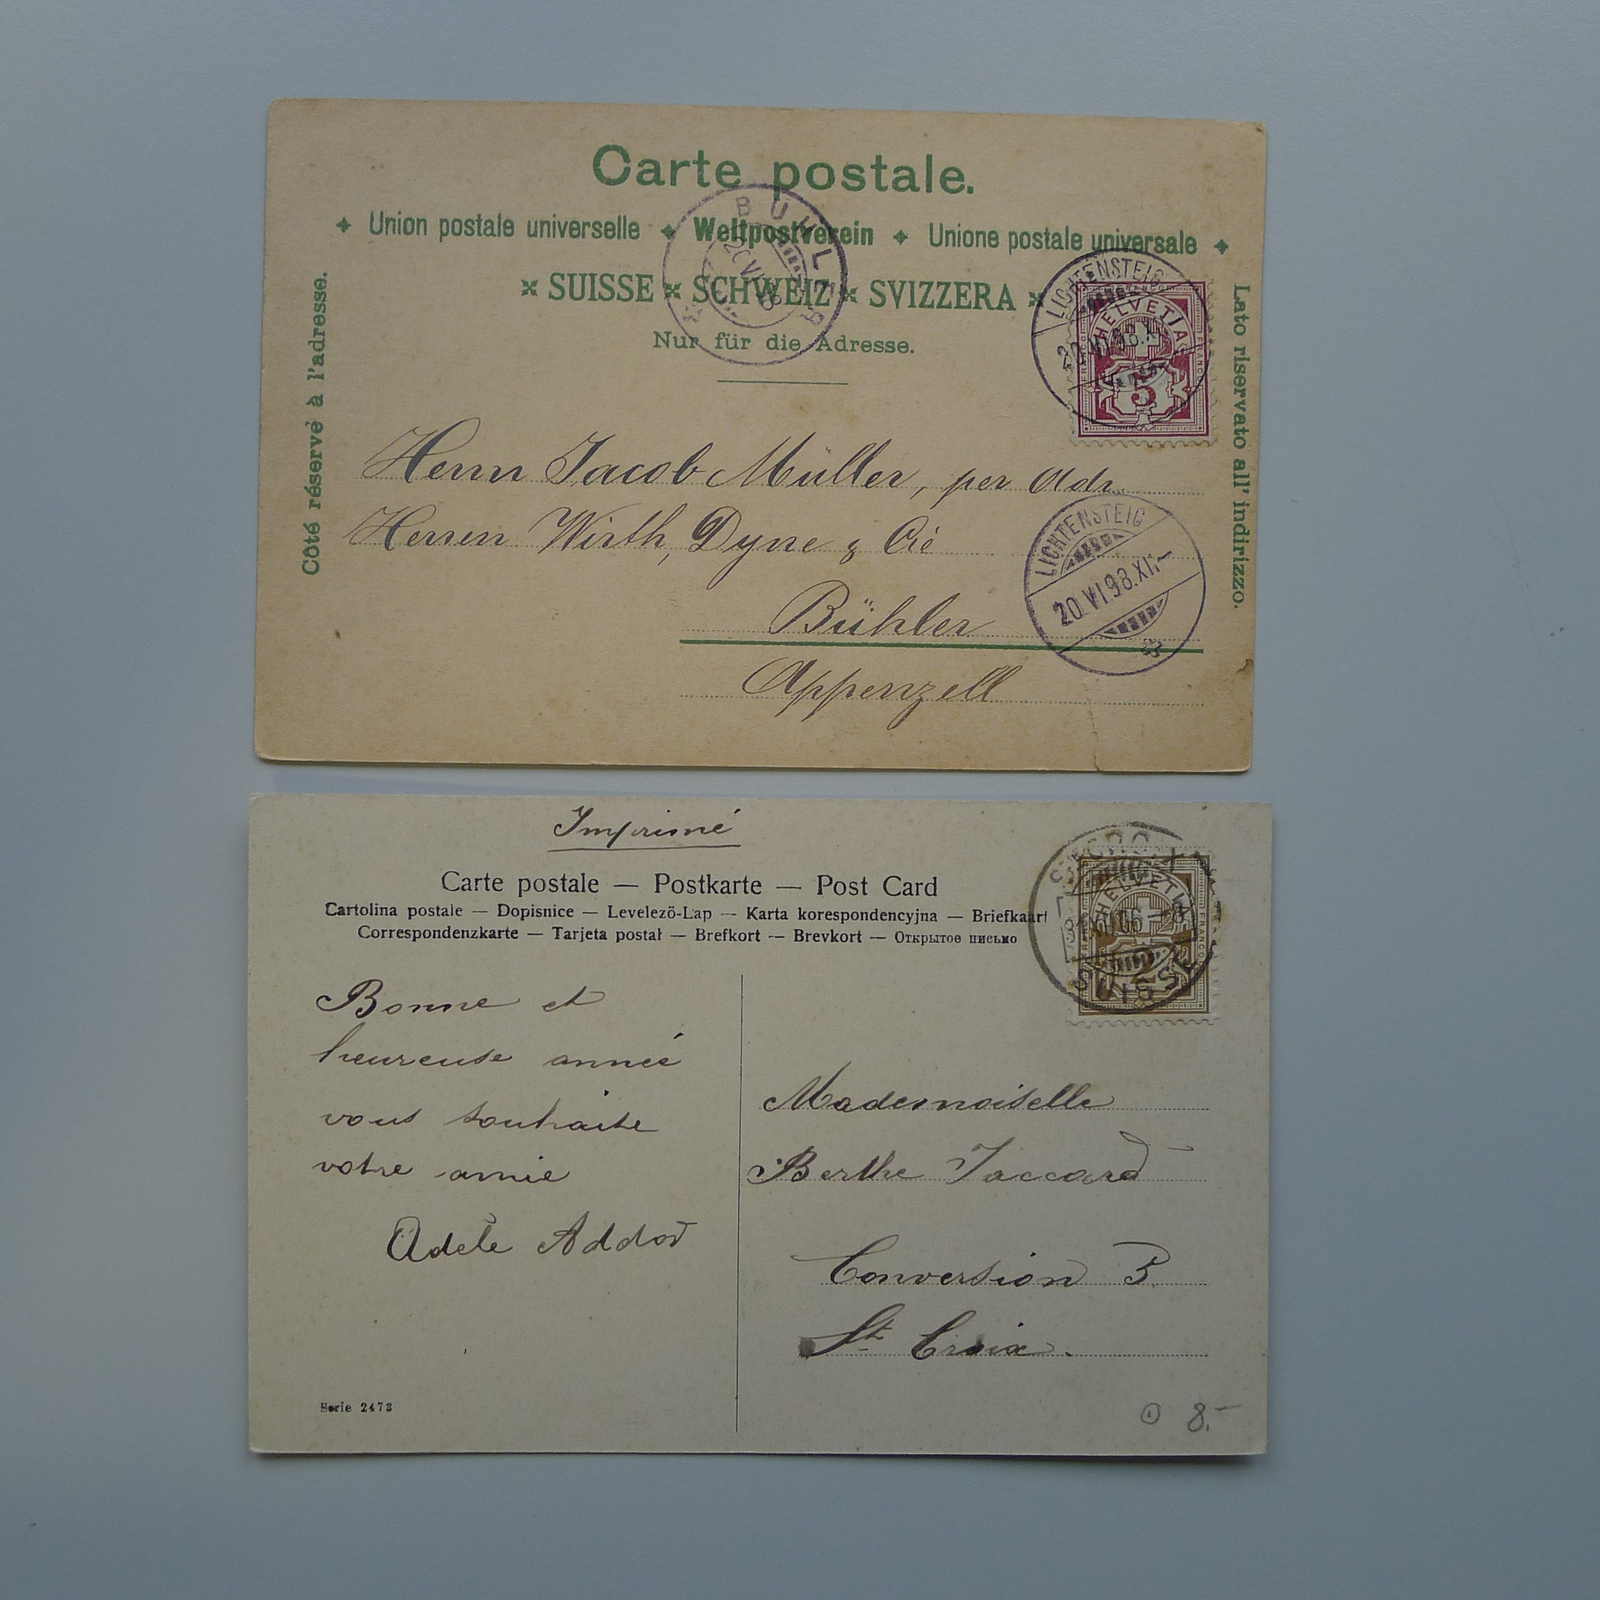 Carte postale.
Union postale universelle Weltpostverein Unione postale universale
SUISSE SCHWEIZ SVIZZERA
Nur für die Adresse.
Côté réservé à l'adresse.
Lato riservato all' indirizzo.
BÜHLER
LICHTENSTEIG
HELVETIA
FRANCO
5
Herrn Jacob Müller, per Adr.
Herren Wirth, Dyne & Cie
Bühler
Appenzell
LICHTENSTEIG
20.VI.98.XI.-
Imprimé
Carte postale — Postkarte — Post Card
Cartolina postale — Dopisnice — Levelező-Lap — Karta korespondencyjna — Briefkaart
Correspondenzkarte — Tarjeta postal — Brefkort — Brevkort — Открытое письмо
HELVETIA
FRANCO
2
SUISSE
Bonne et
heureuse année
vous souhaite
votre amie
Adèle Addor
Mademoiselle
Berthe Jaccard
Conversion 3.
St Croix.
Serie 2473
8.–